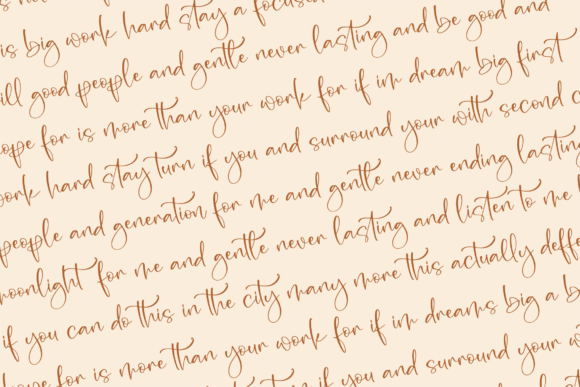 is big work hard stay a focused
ill good people and gentle never lasting and be good and
hope for is more than your work for if im dream big first
work hard stay turn if you and surround your with second c
people and generation for me and gentle never ending lasting
moonlight for me and gentle never lasting and listen to me
if you can do this in the city many more this actually deffe
hope for is more than your work for if im dreams big a b
stay turn if you and surround your w